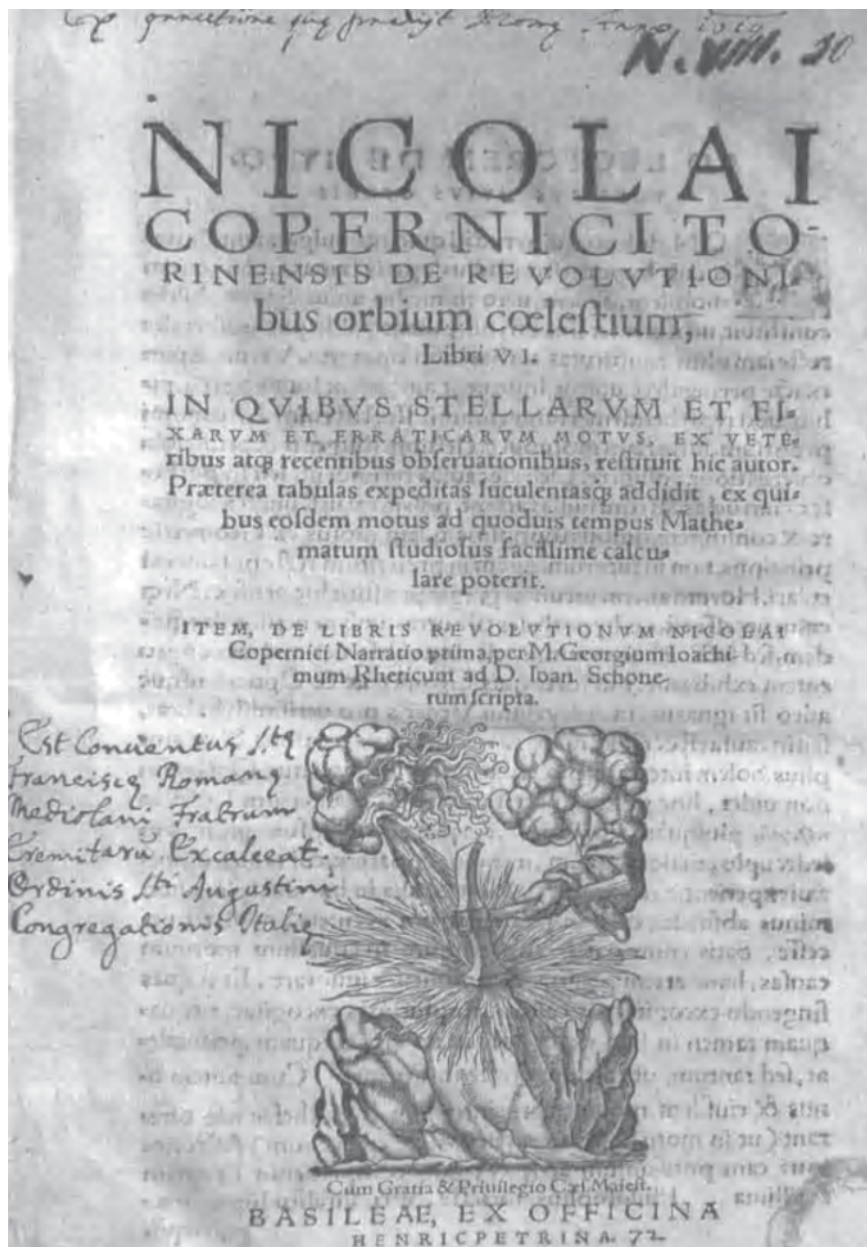 N. VIII. 20
NICOLAI
COPERNICI TO-
RINENSIS DE REVOLVTIONI-
bus orbium cœleſtium,
Libri VI.
IN QVIBVS STELLARVM ET FI-
XARVM ET ERRATICARVM MOTVS, EX VETE-
ribus atq; recentibus obſeruationibus, reſtituit hic autor.
Præterea tabulas expeditas luculentasq; addidit, ex qui-
bus eoſdem motus ad quoduis tempus Mathe-
matum ſtudioſus facillime calcu-
lare poterit.
ITEM, DE LIBRIS REVOLVTIONVM NICOLAI
Copernici Narratio prima, per M. Georgium Ioachi-
mum Rheticum ad D. Ioan. Schone-
rum ſcripta.
Est Conventus
Francisci Romanę
Mediolani Fratrum
Eremitarū Excalceat.
Ordinis Sti Augustini
Congregationis Italię
Cum Gratia & Priuilegio Cæſ. Maieſt.
BASILEAE, EX OFFICINA
HENRICPETRINA.